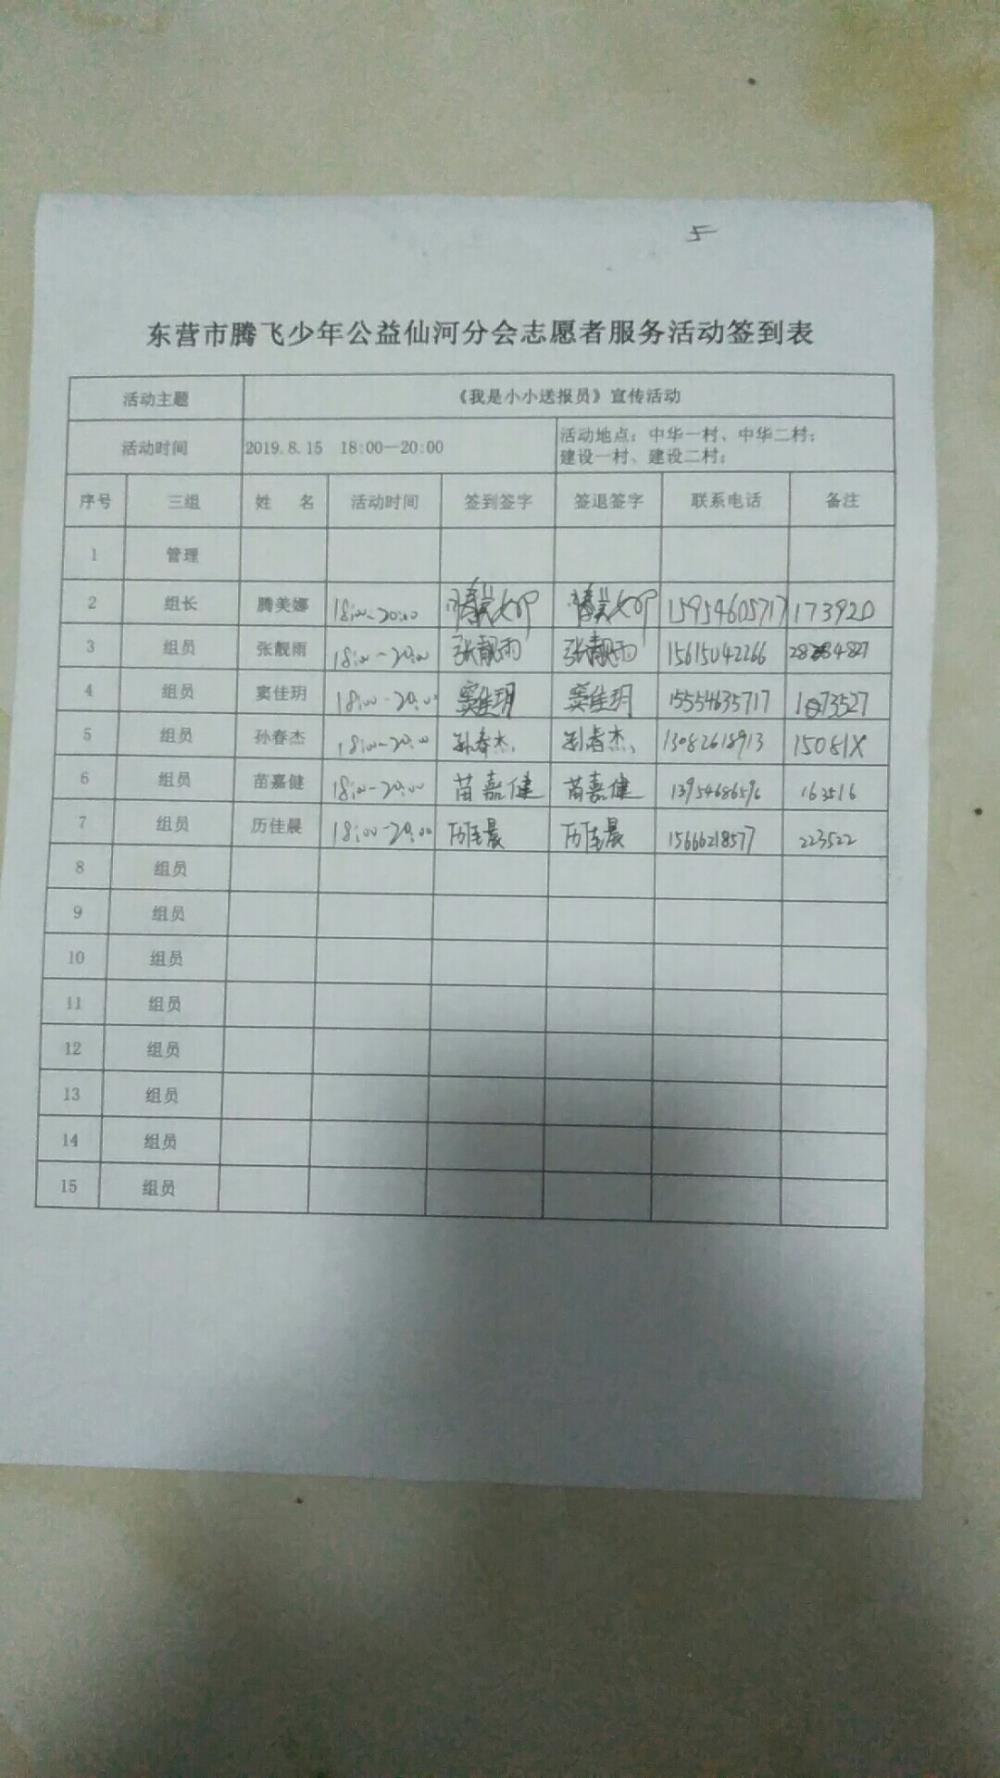 5
东营市腾飞少年公益仙河分会志愿者服务活动签到表
活动主题 《我是小小送报员》宣传活动
活动时间 2019.8.15 18:00—20:00 活动地点：中华一村、中华二村；
建设一村、建设二村；
序号 三组 姓 名 活动时间 签到签字 签退签字 联系电话 备注
1 管理
2 组长 腾美娜 18:00-20:00 腾美娜 腾美娜 15954605717 173920
3 组员 张靓雨 18:00-20:00 张靓雨 张靓雨 15615042266
4 组员 窦佳玥 18:00-20:00 窦佳玥 窦佳玥 15554635717
5 组员 孙春杰 18:00-20:00 孙春杰 孙春杰 13082618913 15081X
6 组员 苗嘉健 18:00-20:00 苗嘉健 苗嘉健 13954686596 163516
7 组员 历佳晨 18:00-20:00 历佳晨 历佳晨 15666218577 223522
8 组员
9 组员
10 组员
11 组员
12 组员
13 组员
14 组员
15 组员